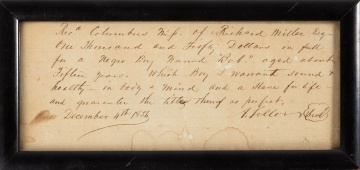 Rec^d Columbus Mi^p. of Richard Miller Esq
One Thousand and Fifty Dollars in full
for a Negro Boy Named "Bob" aged about
Fifteen years. Which Boy I warrant sound &
healthy - in body & mind, and a Slave for life -
and guarantee the title thereof as perfect.
December 4th 1856